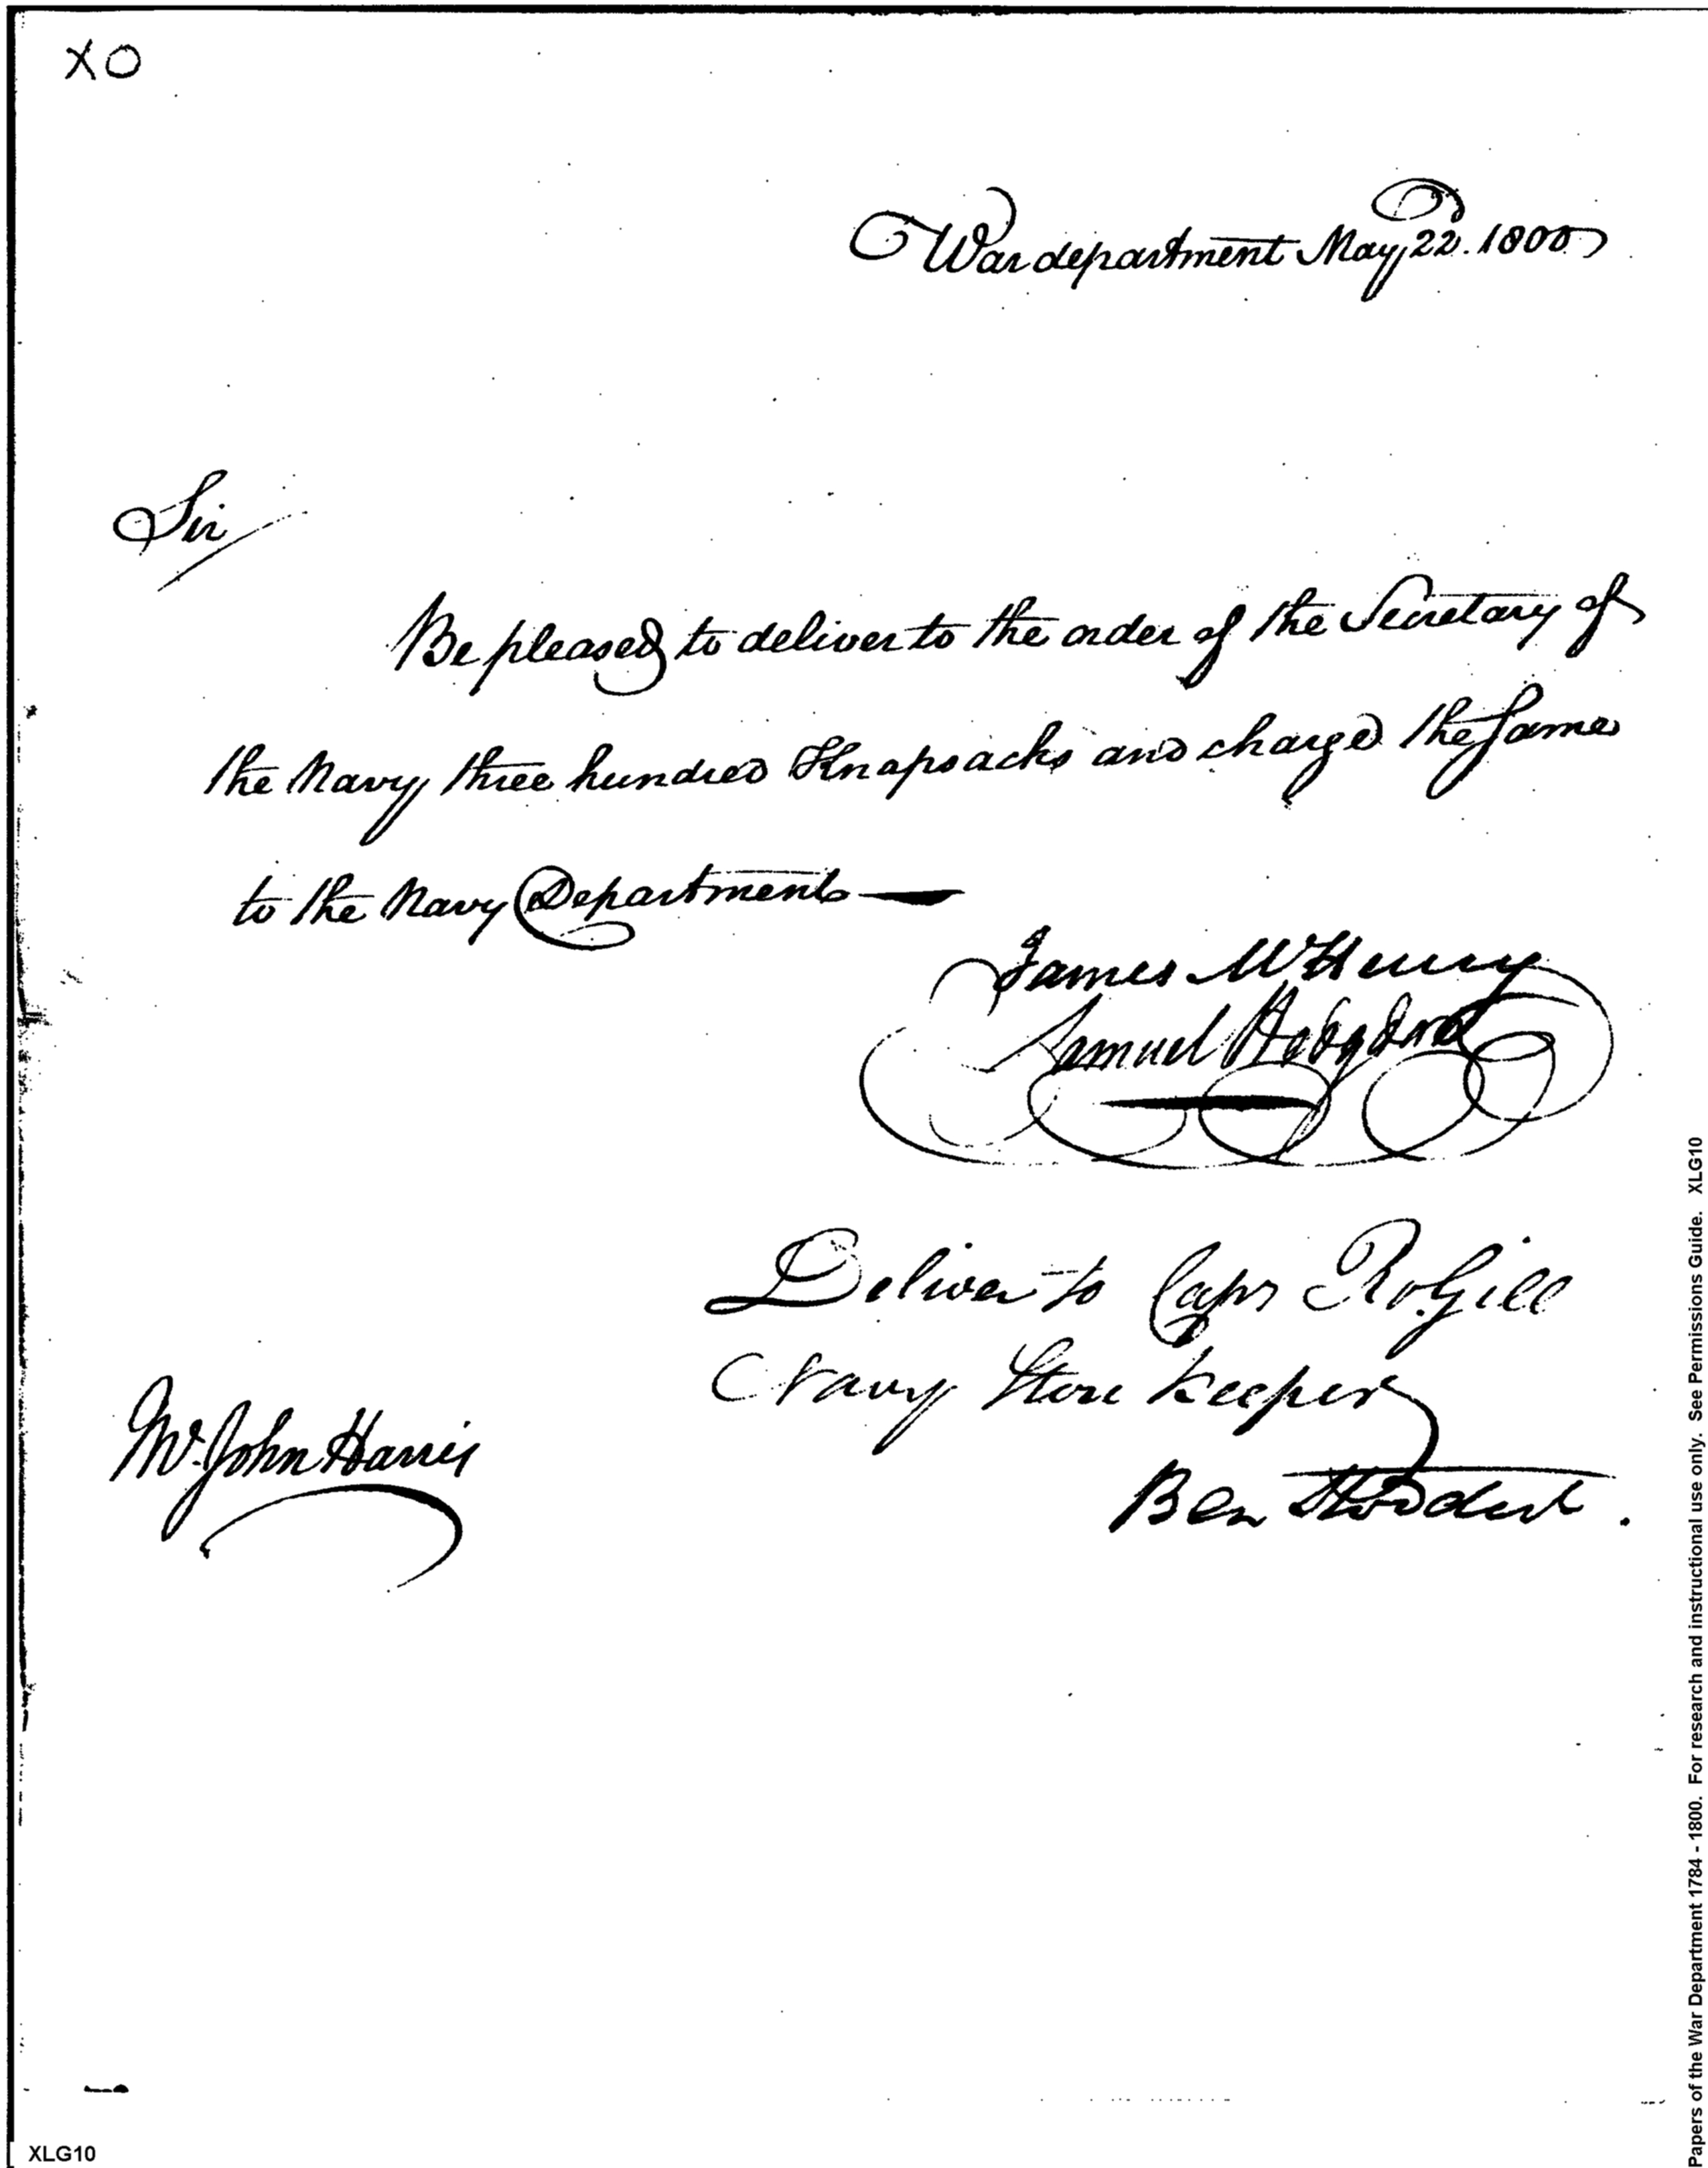 XO
War department May 22. 1800
Sir
Be pleased to deliver to the order of the Secretary of
the Navy three hundred Knapsacks and charge the same
to the Navy Department —
James McHenry
Samuel Hodgdon
Deliver to Capt Ro. Gill
Navy Store keeper
Ben Stoddert.
Mr. John Harris
XLG10
Papers of the War Department 1784 - 1800. For research and instructional use only. See Permissions Guide. XLG10